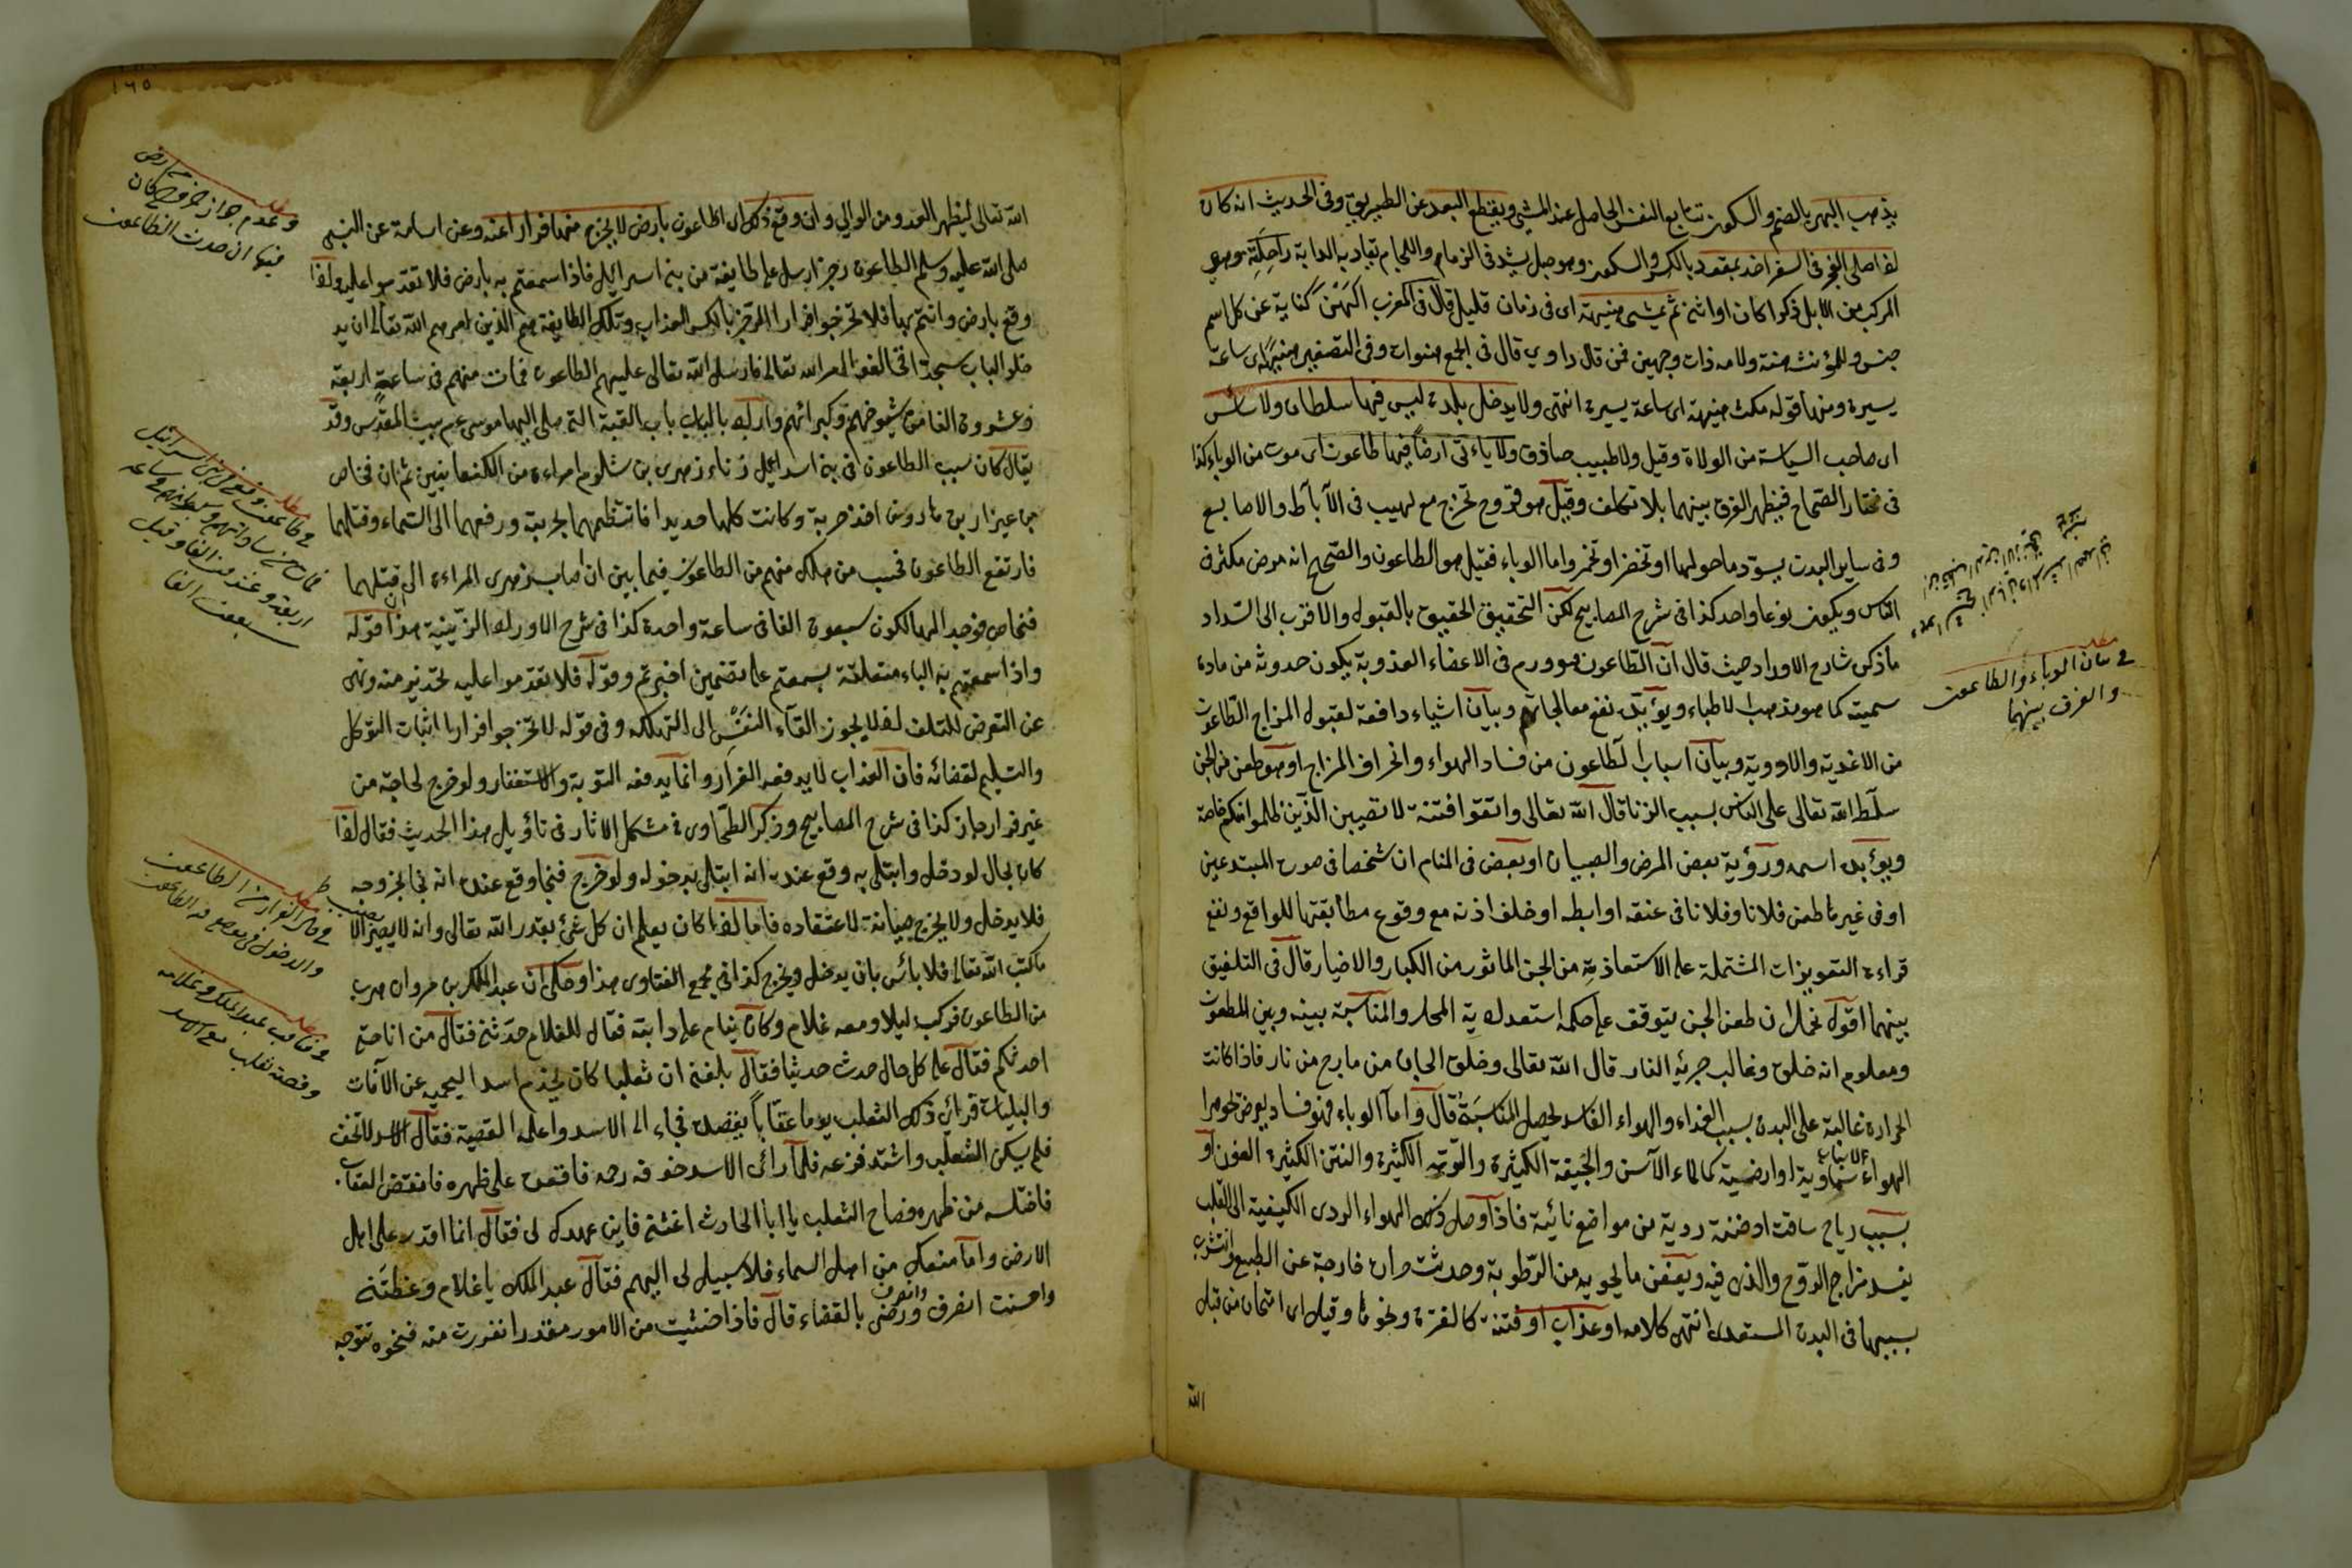 يذهب البهر بالضم والسكون تتابع النفس الحاصل عند المشي ويقطع البعد عن الطريق وفى الحديث انه كان
لفا صلى الفجر فى السفر اخذ بمقود بالكسر والسكون وهو حبل يشد فى الزمام واللجام تقاد به الدابة راحلته وهو
المركب من الابل ذكرا كان او انثى ثم يمشى هنيهة اى فى زمان قليل قال فى المغرب الهن كناية عن كل اسم
جنس وللمؤنث هنة ولامه ذات وجهين فمن قال واوي قال فى الجمع هنوات وفى التصغير هنية اى ساعة
يسيرة ومنها قوله مكث هنيهة اى ساعة يسيرة انتهى ولا يدخل بلدة ليس فيها سلطان ولا سائس
اى صاحب السياسة من الولاة وقيل ولا طبيب حاذق ولا ياءتى ارضا فيها طاعون اى موت من الوباء كذا
فى مختار الصحاح فيظهر الفرق بينهما بلا تكلف وقيل هو قروح تخرج مع لهيب فى الآباط والاصابع
وفى ساير البدن يسود ما حولها او تخضر او تحمر واما الوباء فقيل هو الطاعون والصحيح انه مرض يكثر فى
الناس ويكون نوعا واحد كذا فى شرح المصابيح لكن التحقيق الحقيق بالقبول والاقرب الى السداد
ما ذكره شارح الاوراد حيث قال ان الطاعون هو ورم فى الاعضاء الغذوية يكون حدوثه من مادة
سمية كما هو مذهب الاطباء ويؤيده نفع معالجاتهم وبيان اشياء دافعة لقبول المزاج الطاعون
من الاغذية والادوية وبيان اسباب الطاعون من فساد الهواء وانحراف المزاج او هو طعن من الجن
سلط الله تعالى على الناس بسبب الزنا قال الله تعالى واتقوا فتنة لا تصيبن الذين ظلموا منكم خاصة
ويؤيده اسمه ورؤية بعض المرضى والصبيان او بعض فى المنام ان شخصا فى صورة المبتدعين
او فى غيرها طعن فلانا وفلانا فى عنقه او ابطه او خلف اذنه مع وقوع مطابقتها للواقع ونفع
قراءة التعويزات المشتملة على الاستعاذة من الجن الماثور من الكبار والاخيار قال فى التلفيق
بينهما اقول نختار ان طعن الجن يتوقف على حكمة استعدادية المحل والمناسبة بينه وبين المطعون
ومعلوم انه خلق وغالب جزئه النار قال الله تعالى وخلق الجان من مارج من نار فاذا كانت
الحرارة غالبة على البدن بسبب الغذاء والهواء الفاسد يحصل المناسبة قال واما الوباء فهو فساد يعرض لجوهر
الهواء لاسباب سماوية او ارضية كالماء الآسن والجيفة الكثيرة والتربة الكثيرة والنتن الكثيرة العفن او
بسبب رياح ساقت ادخنة ردية من مواضع نائية فاذا وصل ذلك الهواء الردى الكيفية الى القلب
يفسد مزاج الروح والذى فيه ويعفن ما يحويه من الرطوبة وحدثت حرارة خارجة عن الطبع وانتشرت
بسببها فى البدن المستعد انتهى كلامه او عذاب او فتنة كالفترة ونحوها وقيل اى امتحان من قبل
الله
مطلب
فى بيان الوباء والطاعون
والفرق بينهما
١٦٥
الله تعالى ليظهر العدو من الوالي وان وقع ذلك اى الطاعون بارض لا يخرج منها فرارا عنه وعن اسامة عن النبى
صلى الله عليه وسلم الطاعون رجز ارسل على طايفة من بنى اسرائيل فاذا سمعتم به بارض فلا تقدموا عليه ولفا
وقع بارض وانتم بها فلا تخرجوا فرارا الرجز بالكسر العذاب وتلك الطايفة هم الذين امرهم الله تعالى ان يد
خلوا الباب سجدا فخالفوا امر الله تعالى فارسل الله تعالى عليهم الطاعون فمات منهم فى ساعة اربعة
وعشرون الفا من شيوخهم وكبرائهم واراد بالباب باب القبة التى صلى اليها موسى عم بيت المقدس وقد
يقال كان سبب الطاعون فى بنى اسرائيل زناء زمرى بن شلوم امراءة من الكنعانيين ثم ان فنحاص
بن عيزار بن هارون اخذ حربة وكانت كلها حديدا فانتظمهما بحربته ورفعهما الى السماء وقتلهما
فارتفع الطاعون فحسب من هلك منهم من الطاعون فيما بين ان اصاب زمرى المراءة الى ان قتلهما
فنحاص فوجد الهالكون سبعون الفا فى ساعة واحدة كذا فى شرح الاوراد الزينية هذا قوله
واذا سمعتم به الباء متعلقة بسمعتم على تضمين اخبرتم وقوله فلا تقدموا عليه تحذير منه ونهى
عن التعرض للتلف لفلا يجوز القاء النفس الى التهلكه وفى قوله لا تخرجوا فرارا اثبات التوكل
والتسليم لقضائه فان العذاب لا يدفعه الفرار وانما يدفعه التوبة والاستغفار ولو خرج لحاجة من
غير فرار جاز كذا فى شرح المصابيح وذكر الطحاوى فى مشكل الاثار فى تاؤيل هذا الحديث فقال لفا
كان بحال لو دخل وابتلى به وقع عنده انه ابتلى بدخوله ولو خرج فنجا وقع عنده انه نجى بخروجه
فلا يدخل ولا يخرج صيانة لاعتقاده فاما لفا كان يعلم ان كل شئ بقدر الله تعالى وانه لا يصيبه الا
ما كتب الله تعالى فلا بائس بان يدخل ويخرج كذا فى مجمع الفتاوى هذا وحكى ان عبد الملك بن مروان هرب
من الطاعون فركب ليلا ومعه غلام وكان ينام على دابته فقال للغلام حدثنى فقال من انا حتى
احدثكم فقال على كل حال حدث حديثا فقال بلغنى ان ثعلبا كان يخدم اسدا ليحميه عن الآفات
والبليات فرائي ذلك الثعلب يوما عقابا يقصده فجاء الى الاسد واعلمه القصية فقال الاسد لا تخف
فلم يسكن الثعلب واشتد فزعه فلما رائى الاسد خوفه رحمه فاقعده على ظهره فانقض العقاب
فاختلسه من ظهره فصاح الثعلب يا ابا الحارث اغثنى فاين عهدك لى فقال انما اقدر على اهل
الارض واما منعك من اهل السماء فلا سبيل لى اليهم فقال عبد الملك يا غلام وعظتنى
واحسنت انصرف وانصرف ورضى بالقضاء قال فاذا خشيت من الامور مقدرا ففررت منه فنحوه تتوجه
مطلب
وعدم جواز خروج من ارض كان
فيها ان حدث الطاعون
مطلب
فى طاعون وقع فى بنى اسرائيل
فمات من ساداتهم
اربعة وعشرون الفا وقيل
سبعون الفا
مطلب
فى حكم الفرار من الطاعون
والدخول فى موضع فيه الطاعون
مطلب
عبد الملك وغلامه
وقصة ثعلب مع اسد